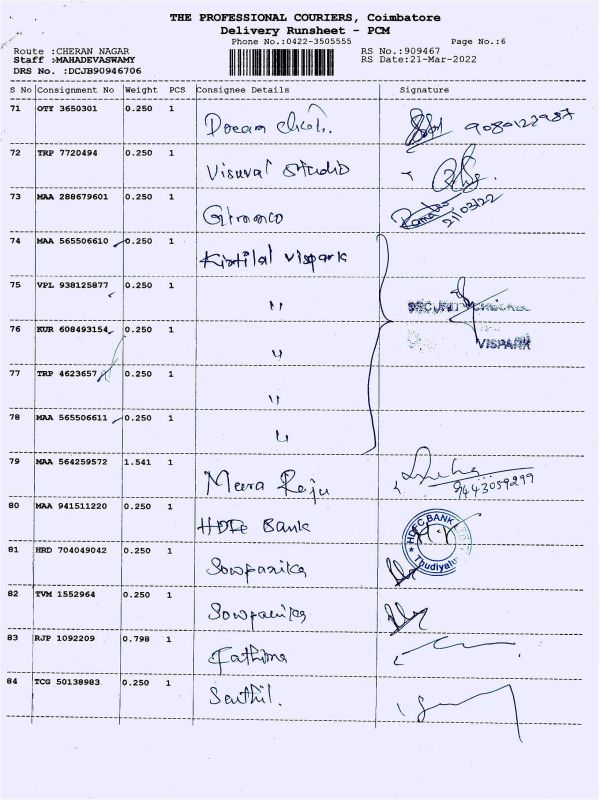 THE PROFESSIONAL COURIERS, Coimbatore
Delivery Runsheet - PCM
Phone No.:0422-3505555 Page No.:6
Route :CHERAN NAGAR RS No.:909467
Staff :MAHADEVASWAMY RS Date:21-Mar-2022
DRS No. :DCJB90946706
S No Consignment No Weight PCS Consignee Details Signature
71 OTY 3650301 0.250 1 Dream 9080122987
72 TRP 7720494 0.250 1 Visuval Studio
73 MAA 288679601 0.250 1 21/03/22
74 MAA 565506610 0.250 1 Kirtilal Vispark
75 VPL 938125877 0.250 1 "
SECURITY
76 KUR 608493154 0.250 1 "
VISPARK
77 TRP 4623657 0.250 1 "
78 MAA 565506611 0.250 1 "
79 MAA 564259572 1.541 1 Meera Raju 9443059299
80 MAA 941511220 0.250 1 HDFC Bank HDFC BANK
Thudiyalur
81 HRD 704049042 0.250 1 Sowparika
82 TVM 1552964 0.250 1 Sowparika
83 RJP 1092209 0.798 1 Fathima
84 TCG 50138983 0.250 1 Senthil.